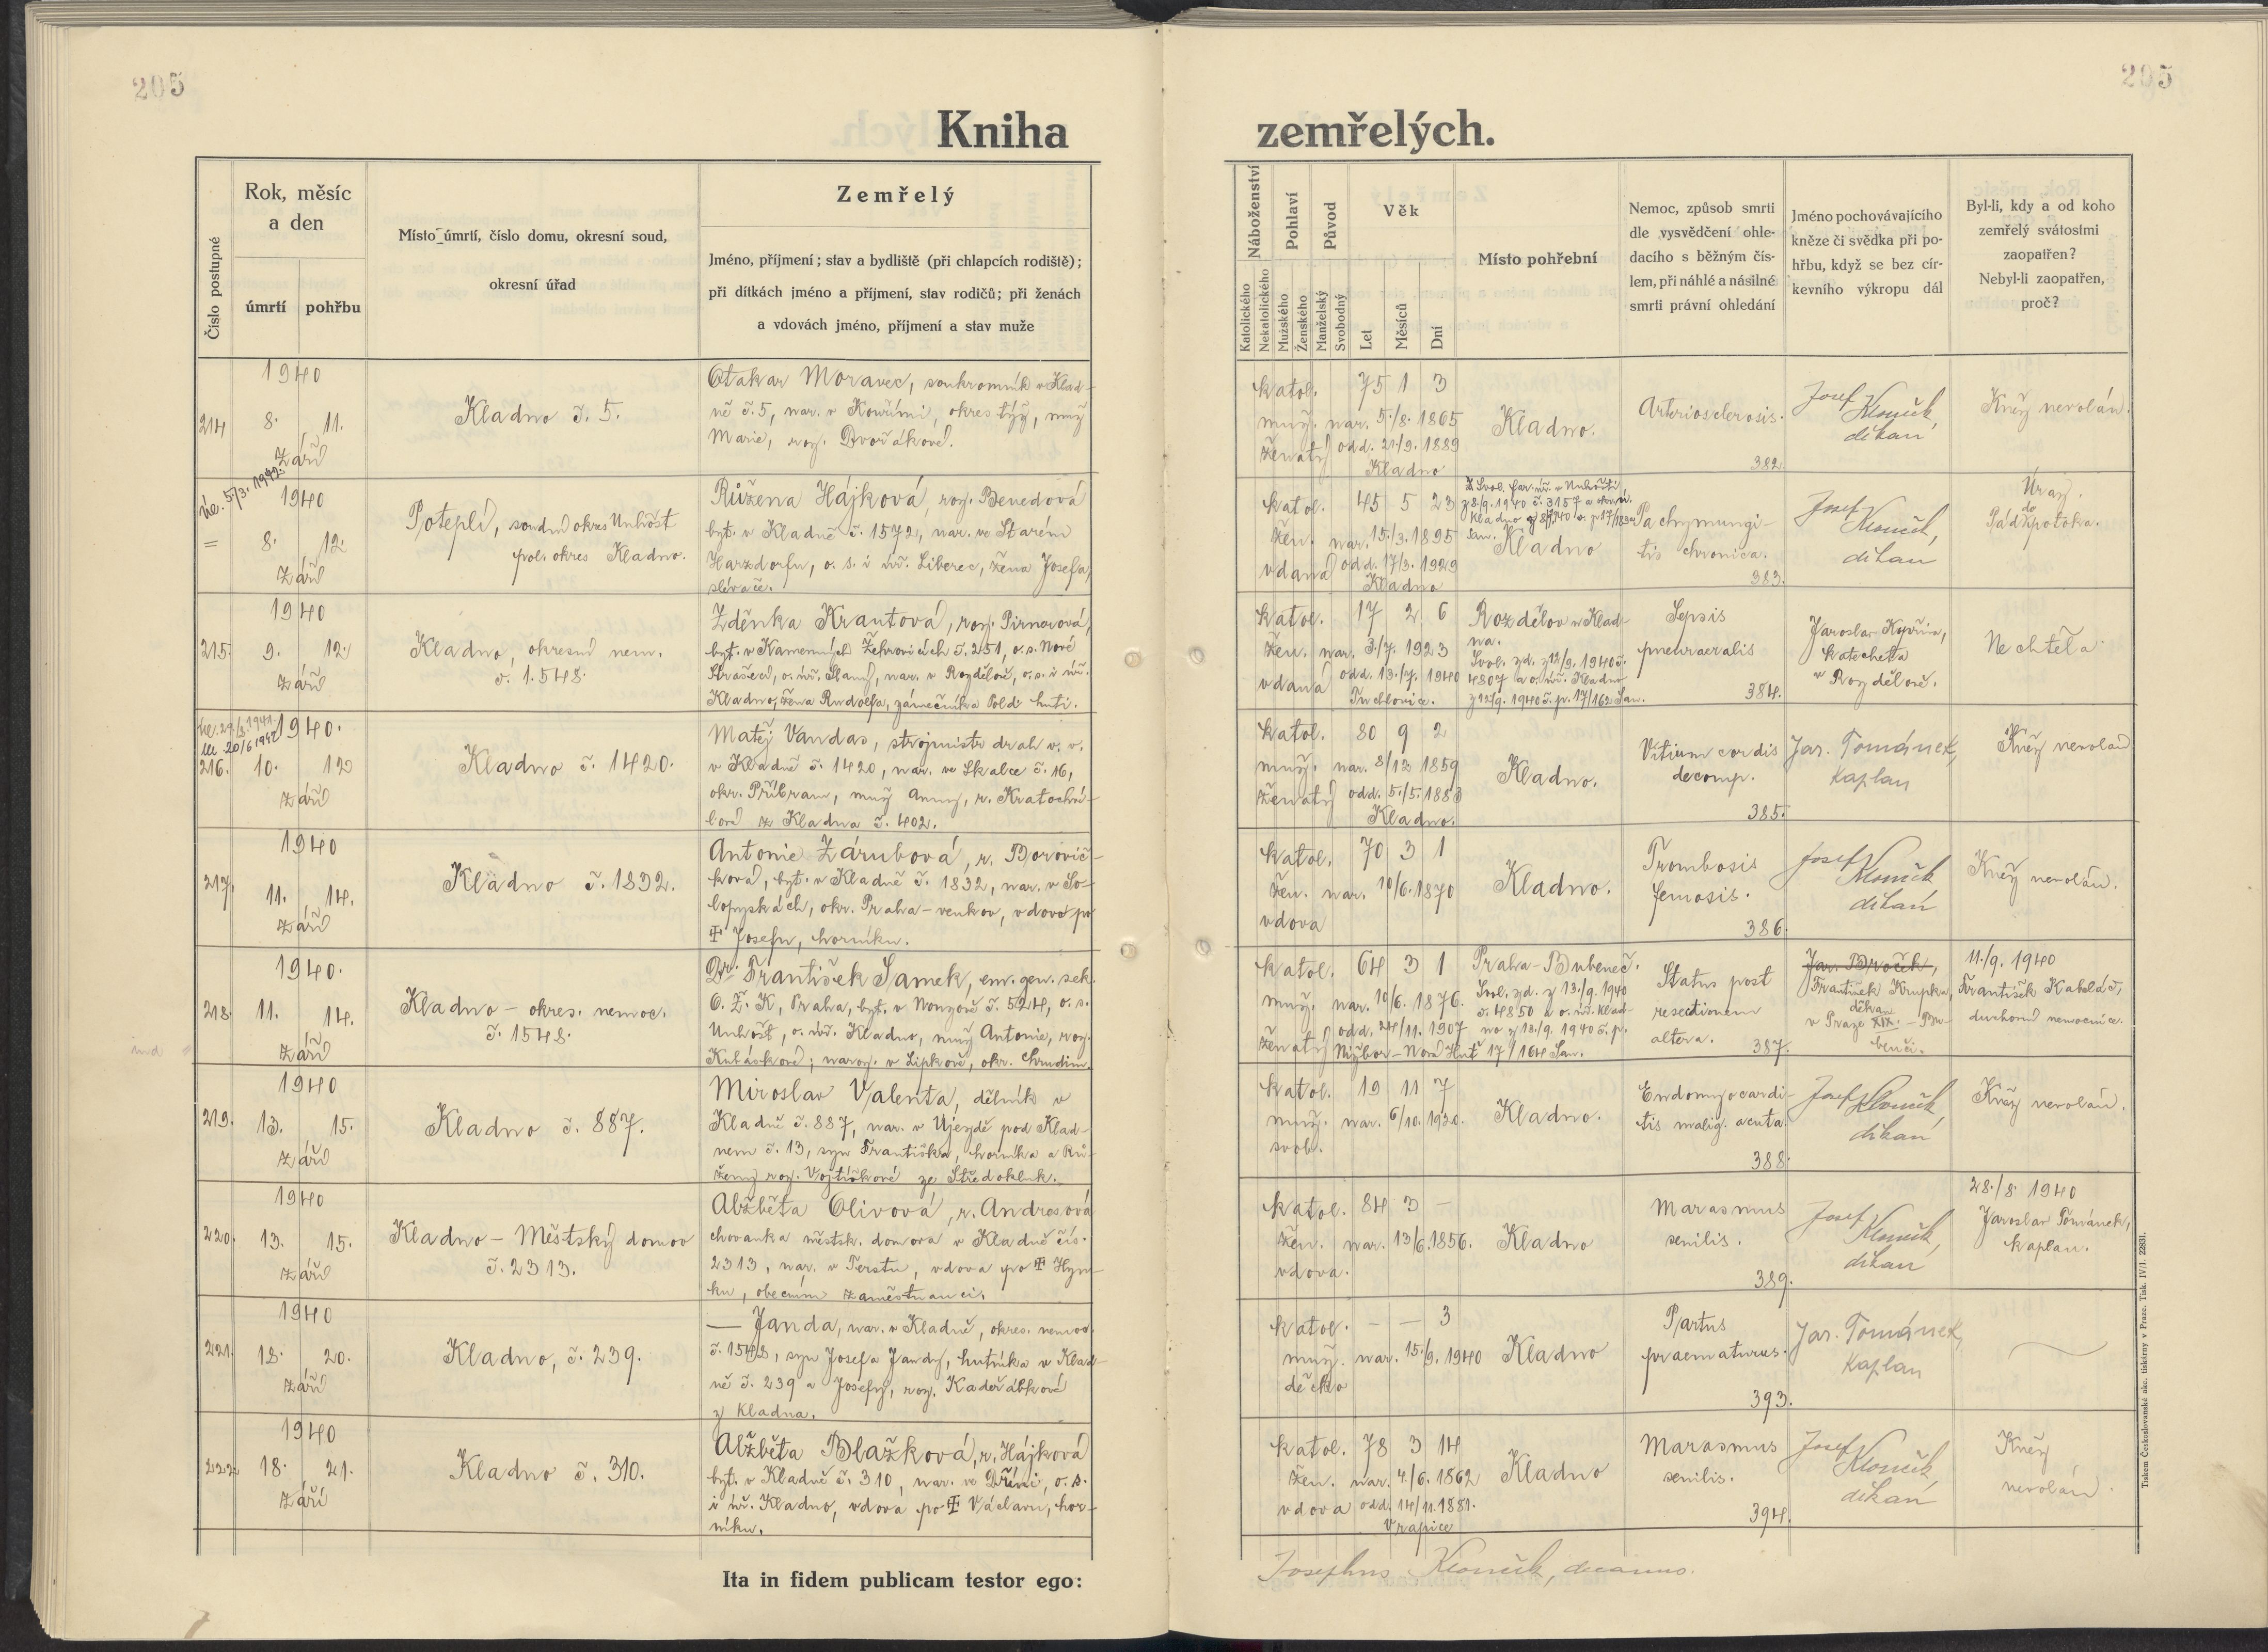 205
205
Kniha zemřelých.
Číslo postupné
Rok, měsíc
a den
úmrtí
pohřbu
Místo úmrtí, číslo domu, okresní soud,
okresní úřad
Zemřelý
Jméno, příjmení; stav a bydliště (při chlapcích rodiště);
při dítkách jméno a příjmení, stav rodičů; při ženách
a vdovách jméno, příjmení a stav muže
Náboženství
Katolického
Nekatolického
Pohlaví
Mužského
Ženského
Původ
Manželský
Svobodný
Věk
Let
Měsíců
Dní
Místo pohřební
Nemoc, způsob smrti
dle vysvědčení ohle-
dacího s běžným čís-
lem, při náhlé a násilné
smrti právní ohledání
Jméno pochovávajícího
kněze či svědka při po-
hřbu, když se bez cír-
kevního výkropu dál
Byl-li, kdy a od koho
zemřelý svátostmi
zaopatřen?
Nebyl-li zaopatřen,
proč?
214
1940
8. 11.
Září
Kladno č. 5.
Otakar Moravec, soukromník v Klad-
ně č. 5, nar. v Kouřimi, okres týž, muž
Marie, roz. Dvořákové.
katol. 75 1 3
muž. nar. 5./8. 1865
ženatý odd. 21/9. 1889
Kladno
Kladno.
Arteriosclerosis.
382.
Josef Kloučk,
děkan
Kněz nevolán.
5./3. 1942.
=
1940
8. 12.
Září
Poteplí, soudní okres Unhošť
pol. okres Kladno.
Růžena Hájková, roz. Benedová
byt. v Kladně č. 1572, nar. ve Starém
Harzdorfu, o. s. i úř. Liberec, žena Josefa,
slévače.
katol. 45 5 23
žen. nar. 15./3. 1895
vdaná odd. 17/3. 1929
Kladno
Kladno
Pachymningi-
tis chronica.
383.
Josef Kloučk,
děkan
Úraz.
Pád do potoka.
215.
1940
9. 12.
září
Kladno, okresní nem.
č. 1.548.
Zděnka Krautová, roz. Pirnerová,
byt. v Kamenných Žehrovicích č. 251, o. s. Nové
Strašecí, o. úř. Slaný, nar. v Rozdělově, o. s. i úř.
Kladno, žena Rudolfa, zámečníka Poldi huti.
katol. 17 2 6
žen. nar. 3./7. 1923
vdaná odd. 13./7. 1940
Tuchlovice.
Rozdělov u Klad-
na.
Svol. zd. z 12/9. 1940 č.
4807 a o. úř. Kladno
z 12/9. 1940 č. p. 17/162 San.
Sepsis
puerperalis
384.
Jaroslav Kopřiva,
katecheta
v Rozdělově.
Nechtěla.
20/6 1942
216.
1940.
10. 12
září
Kladno č. 1420.
Matěj Vandas, strojmistr drah v. v.
v Kladně č. 1420, nar. ve Skalce č. 16,
okr. Příbram, muž Anny, r. Kratochví-
lové z Kladna č. 402.
katol. 80 9 2
muž. nar. 8/12 1859
ženatý odd. 5./5. 1883
Kladno.
Kladno.
Vitium cordis
decomp.
385.
Jar. Tománek,
kaplan
Kněz nevolán
217.
1940
11. 14.
září
Kladno č. 1832.
Antonie Zárubová, r. Borovič-
ková, byt. v Kladně č. 1832, nar. v So-
lopyskách, okr. Praha-venkov, vdova po
✝ Josefu, horníku.
katol. 70 3 1
žen. nar. 10/6. 1870
vdova
Kladno.
Trombosis
femosis.
386.
Josef Kloučk
děkan
Kněz nevolán.
218.
1940.
11. 14.
září
Kladno - okres. nemoc.
č. 1548.
Dr. František Samek, em. gen. sek.
O. Ž. K, Praha, byt. v Nouzově č. 524, o. s.
Unhošť, o. úř. Kladno, muž Antonie, roz.
Kubánkové; naroz. v Lipkově, okr. Chrudim.
katol. 64 3 1
muž. nar. 10/6. 1876.
ženatý odd. 24/11. 1907
Nižbor-Nová Huť
Praha-Bubeneč.
Svol. zd. z 13./9. 1940
č. 4850 a o. úř. Klad-
no z 13./9. 1940 č. p.
17/164 San.
Status post
resectionem
altera.
387.
Jar. Broček,
František Krupka,
děkan
v Praze XIX. - Bu-
benči.
11./9. 1940
František Koláč,
duchovní nemocnice.
219.
1940
13. 15.
září
Kladno č. 887.
Miroslav Valenta, dělník v
Kladně č. 887, nar. v Újezdě pod Klad-
nem č. 13, syn Františka, horníka a Rů-
ženy roz. Vojtíškové ze Středokluk.
katol. 19 11 7
muž. nar. 6/10. 1920.
svob.
Kladno.
Endomyocardi-
tis malig. acuta.
388.
Josef Kloučk,
děkan
Kněz nevolán.
220.
1940
13. 15.
září
Kladno - Městský domov
č. 2313.
Alžběta Olivová, r. Andresová
chovanka městsk. domova v Kladně čís.
2313, nar. v Terstu, vdova po ✝ Hyn-
ku, obecním zaměstnanci.
katol. 84 3 -
žen. nar. 13/6. 1856.
vdova.
Kladno
Marasmus
senilis.
389.
Josef Kloučk,
děkan
28./8. 1940
Jaroslav Tománek,
kaplan.
221.
1940
18. 20.
září
Kladno, č. 239.
— Janda, nar. v Kladně, okres. nemoc.
č. 1548, syn Josefa Jandy, hutníka v Klad-
ně č. 239 a Josefy, roz. Kadeřábkové
z Kladna.
katol. - - 3
muž. nar. 15./9. 1940
děcko
Kladno
Partus
praematurus.
393.
Jar. Tománek,
kaplan
222.
1940
18. 21.
Září
Kladno č. 310.
Alžběta Blažková, r. Hájková
byt. v Kladně č. 310, nar. ve Dříni, o. s.
i úř. Kladno, vdova po ✝ Václavu, hor-
níku.
katol. 78 3 14
žen. nar. 4./6. 1862
vdova odd. 14/11. 1881.
Vrapice
Kladno
Marasmus
senilis.
394.
Josef Kloučk,
děkan
Kněz
nevolán.
Ita in fidem publicam testor ego:
Josephus Kloučk, decanus.
Tiskem Československé akc. tiskárny v Praze. Tisk. IV/1. 22831.